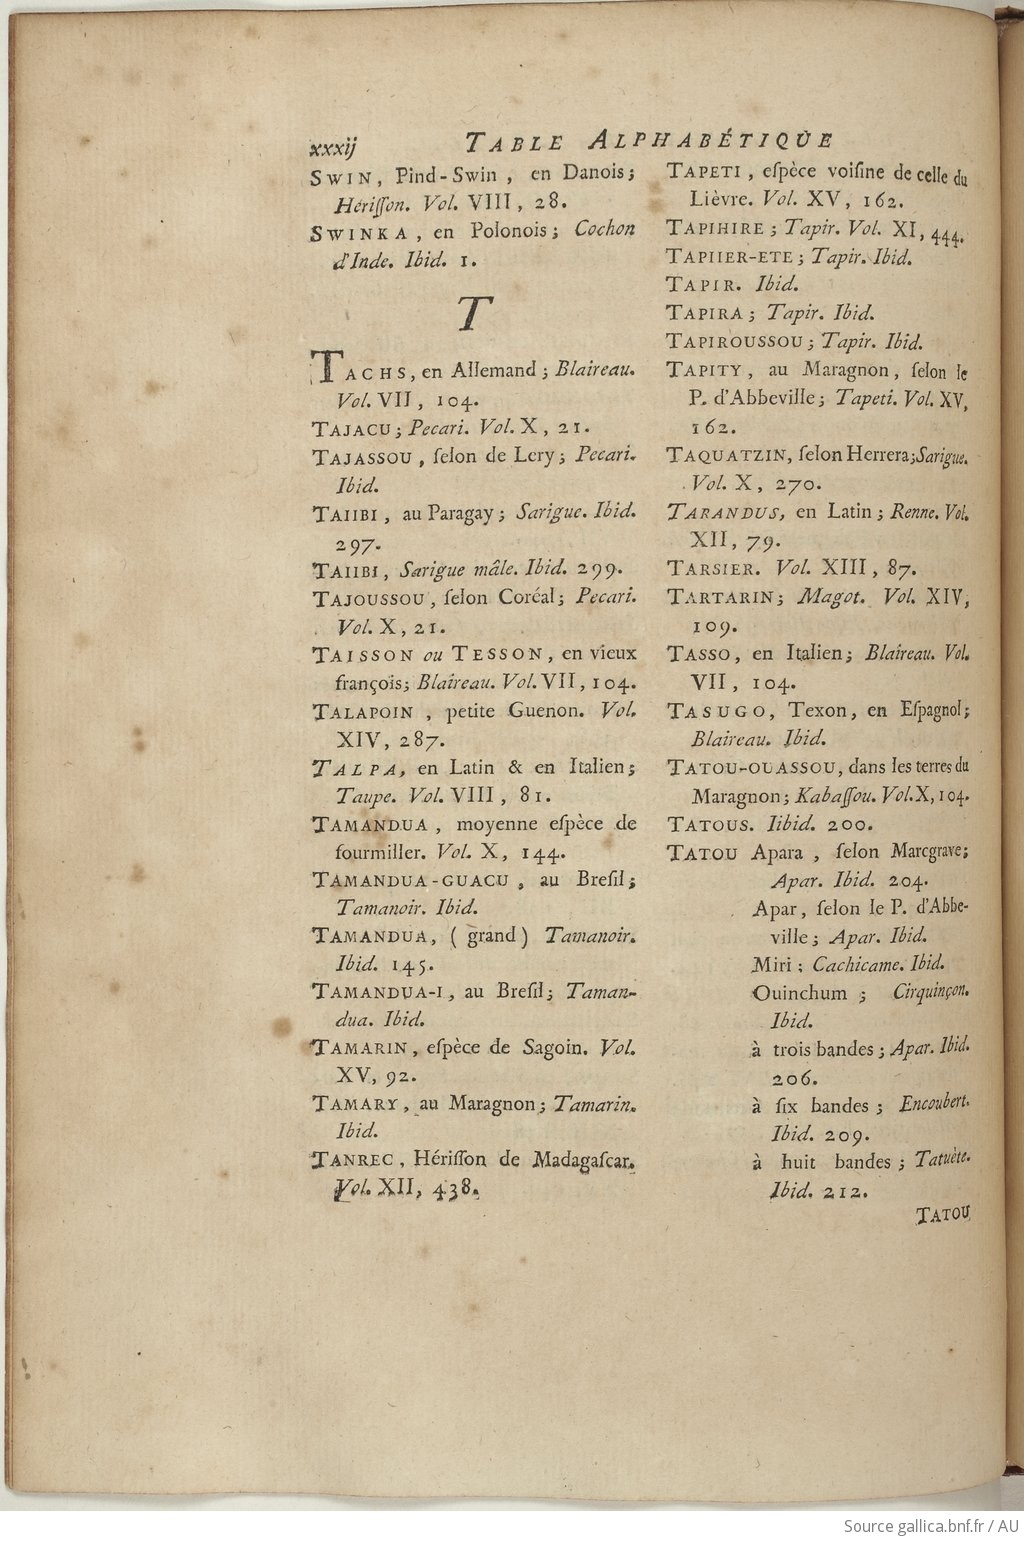 xxxij TABLE ALPHABÉTIQUE
SWIN, Pind-Swin, en Danois;
Hériſſon. Vol. VIII, 28.
SWINKA, en Polonois; Cochon
d'Inde. Ibid. 1.
T
TACHS, en Allemand; Blaireau.
Vol. VII, 104.
TAJACU; Pecari. Vol. X, 21.
TAJASSOU, ſelon de Lery; Pecari.
Ibid.
TAIIBI, au Paragay; Sarigue. Ibid.
297.
TAIIBI, Sarigue mâle. Ibid. 299.
TAJOUSSOU, ſelon Coréal; Pecari.
Vol. X, 21.
TAISSON ou TESSON, en vieux
françois; Blaireau. Vol. VII, 104.
TALAPOIN, petite Guenon. Vol.
XIV, 287.
TALPA, en Latin & en Italien;
Taupe. Vol. VIII, 81.
TAMANDUA, moyenne eſpèce de
fourmiller. Vol. X, 144.
TAMANDUA-GUACU, au Breſil;
Tamanoir. Ibid.
TAMANDUA, (grand) Tamanoir.
Ibid. 145.
TAMANDUA-I, au Breſil; Taman-
dua. Ibid.
TAMARIN, eſpèce de Sagoin. Vol.
XV, 92.
TAMARY, au Maragnon; Tamarin.
Ibid.
TANREC, Hériſſon de Madagaſcar.
Vol. XII, 438.
TAPETI, eſpèce voiſine de celle du
Lièvre. Vol. XV, 162.
TAPIHIRE; Tapir. Vol. XI, 444.
TAPIIER-ETE; Tapir. Ibid.
TAPIR. Ibid.
TAPIRA; Tapir. Ibid.
TAPIROUSSOU; Tapir. Ibid.
TAPITY, au Maragnon, ſelon le
P. d'Abbeville; Tapeti. Vol. XV,
162.
TAQUATZIN, ſelon Herrera; Sarigue.
Vol. X, 270.
TARANDUS, en Latin; Renne. Vol.
XII, 79.
TARSIER. Vol. XIII, 87.
TARTARIN; Magot. Vol. XIV,
109.
TASSO, en Italien; Blaireau. Vol.
VII, 104.
TASUGO, Texon, en Eſpagnol;
Blaireau. Ibid.
TATOU-OUASSOU, dans les terres du
Maragnon; Kabaſſou. Vol. X, 104.
TATOUS. Iibid. 200.
TATOU Apara, ſelon Marcgrave;
Apar. Ibid. 204.
Apar, ſelon le P. d'Abbe-
ville; Apar. Ibid.
Miri; Cachicame. Ibid.
Ouinchum; Cirquinçon.
Ibid.
à trois bandes; Apar. Ibid.
206.
à ſix bandes; Encoubert.
Ibid. 209.
à huit bandes; Tatuète.
Ibid. 212.
TATOU
Source gallica.bnf.fr / AU